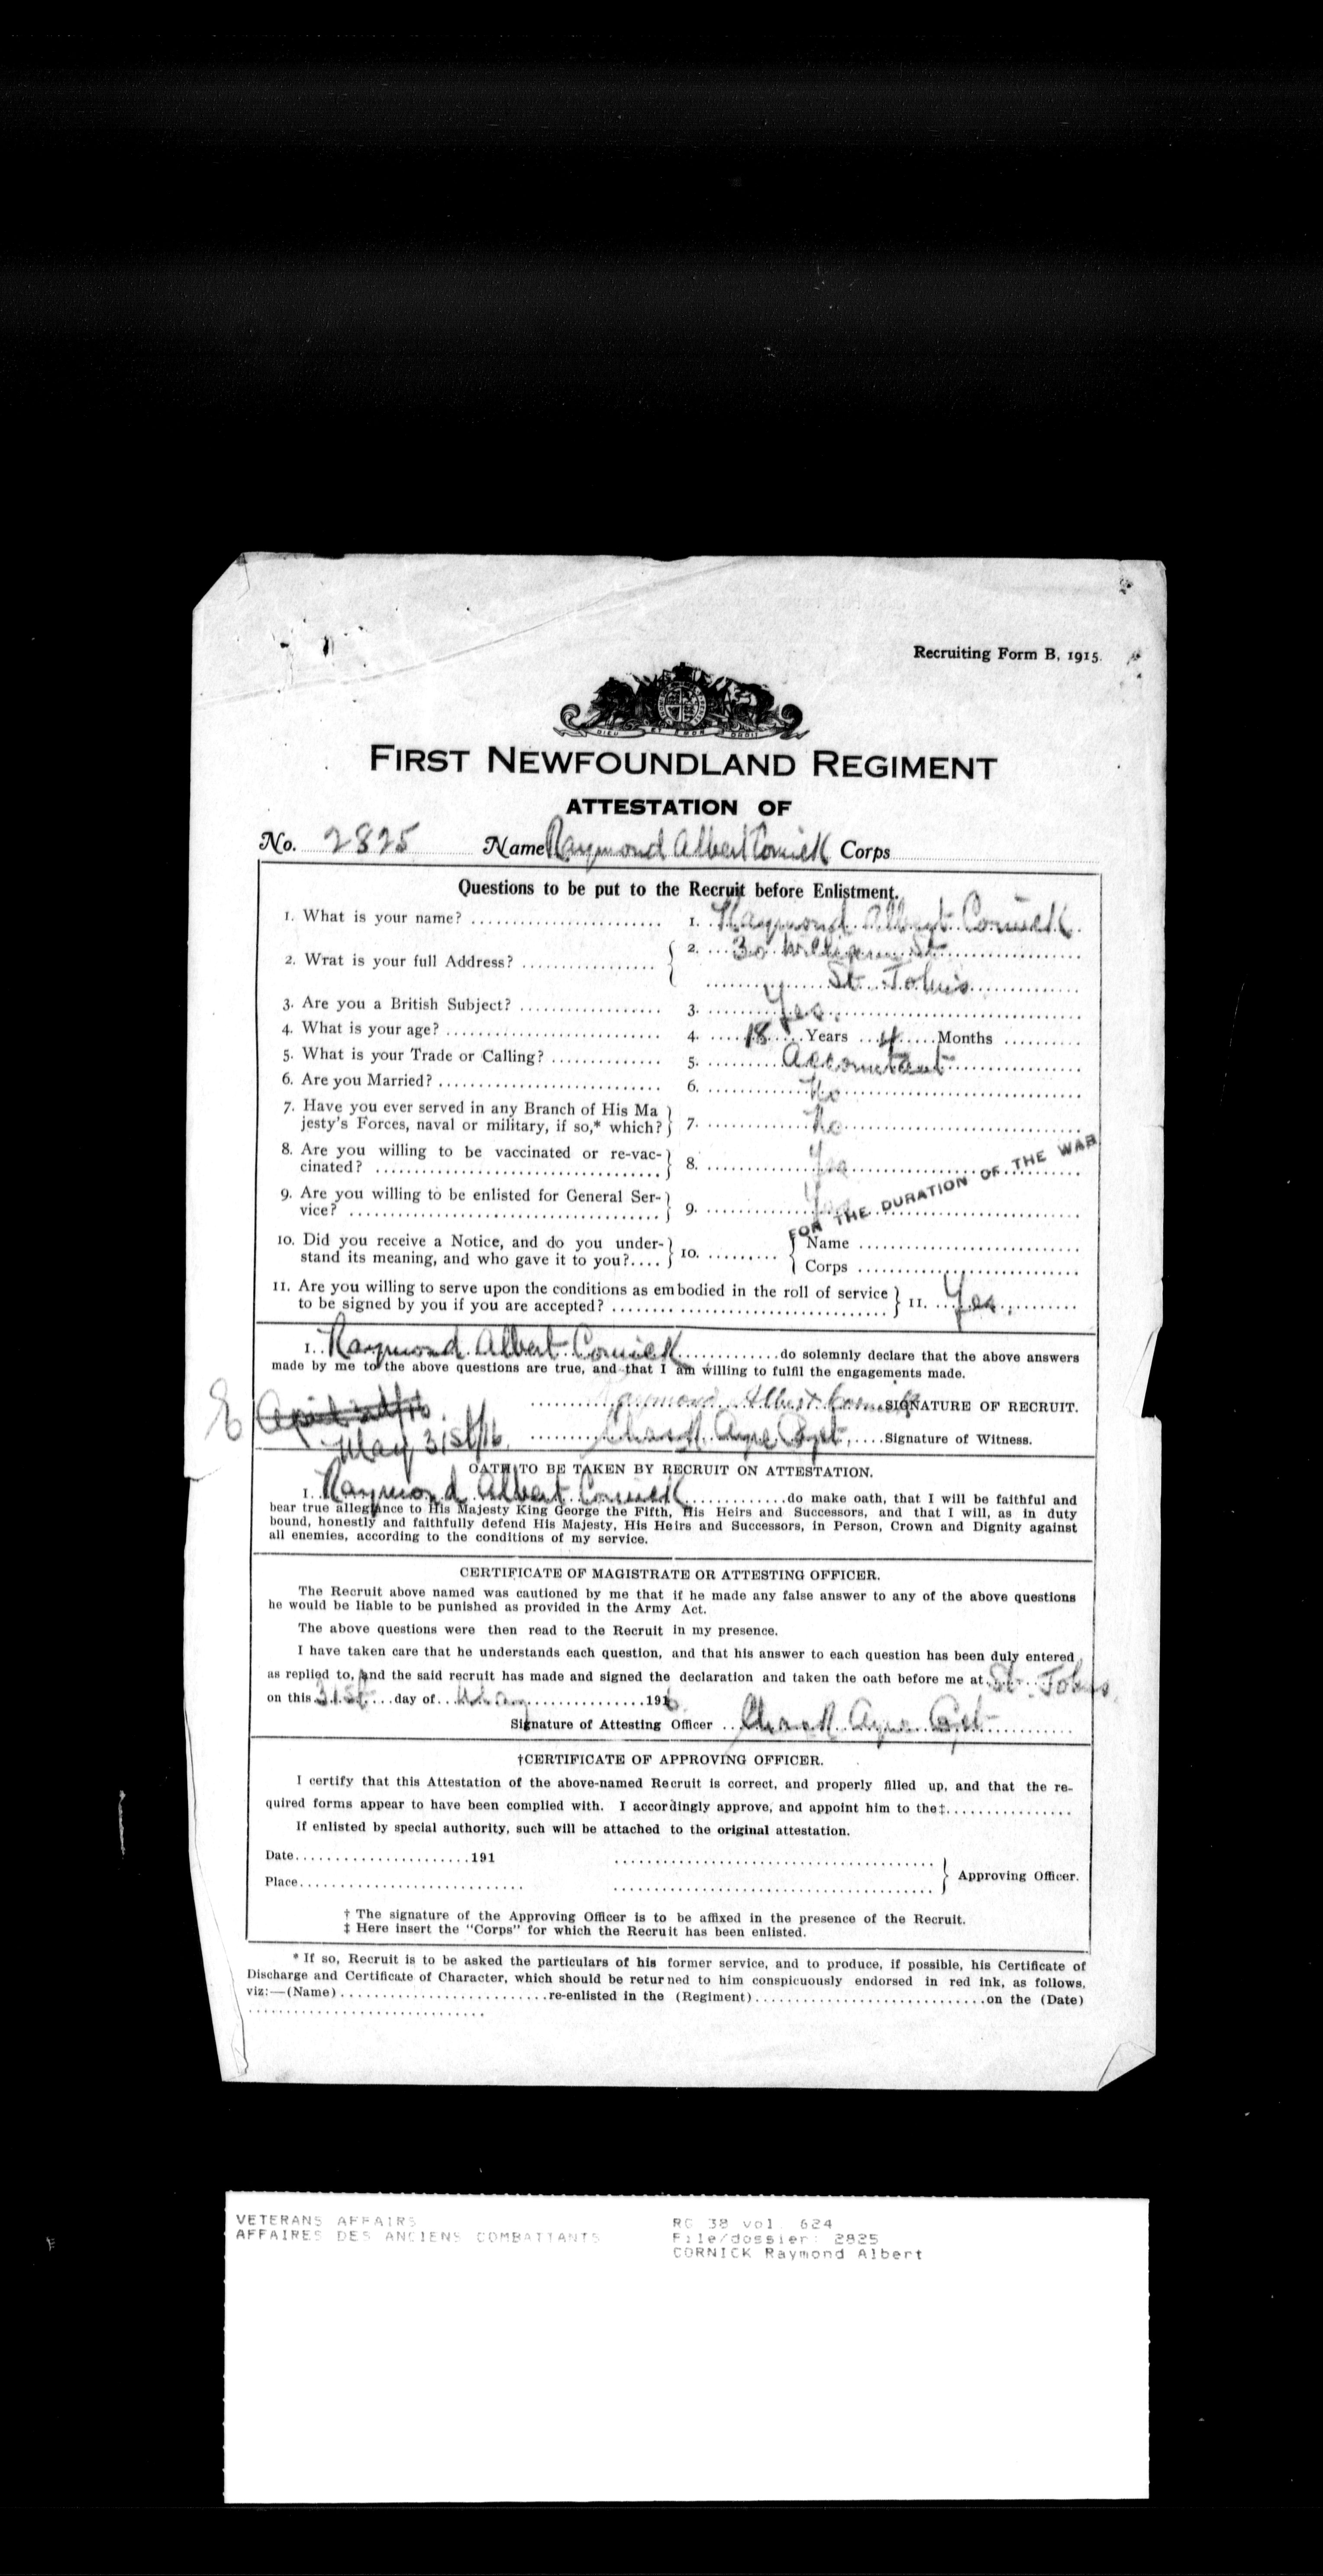 Recruiting Form B, 1915.
DIEU ET MON DROIT
FIRST NEWFOUNDLAND REGIMENT
ATTESTATION OF
No. 2825 Name Raymond Albert Cornick Corps
Questions to be put to the Recruit before Enlistment.
1. What is your name? 1. Raymond Albert Cornick.
2. Wrat is your full Address? 2. 30 William St
St. John's
3. Are you a British Subject? 3. Yes.
4. What is your age? 4. 18 Years 4 Months
5. What is your Trade or Calling? 5. Accountant
6. Are you Married? 6. No
7. Have you ever served in any Branch of His Ma
jesty's Forces, naval or military, if so,* which? 7. No
8. Are you willing to be vaccinated or re-vac-
cinated? 8. Yes
9. Are you willing to be enlisted for General Ser-
vice? 9. Yes
FOR THE DURATION OF THE WAR
10. Did you receive a Notice, and do you under-
stand its meaning, and who gave it to you? 10. Name
Corps
11. Are you willing to serve upon the conditions as embodied in the roll of service
to be signed by you if you are accepted? 11. Yes.
I. Raymond Albert Cornick do solemnly declare that the above answers
made by me to the above questions are true, and that I am willing to fulfil the engagements made.
Raymond Albert Cornick SIGNATURE OF RECRUIT.
May 31st/16. Chas R. Ayre Capt. Signature of Witness.
OATH TO BE TAKEN BY RECRUIT ON ATTESTATION.
I. Raymond Albert Cornick do make oath, that I will be faithful and
bear true allegiance to His Majesty King George the Fifth, His Heirs and Successors, and that I will, as in duty
bound, honestly and faithfully defend His Majesty, His Heirs and Successors, in Person, Crown and Dignity against
all enemies, according to the conditions of my service.
CERTIFICATE OF MAGISTRATE OR ATTESTING OFFICER.
The Recruit above named was cautioned by me that if he made any false answer to any of the above questions
he would be liable to be punished as provided in the Army Act.
The above questions were then read to the Recruit in my presence.
I have taken care that he understands each question, and that his answer to each question has been duly entered
as replied to, and the said recruit has made and signed the declaration and taken the oath before me at St. Johns
on this 31st day of May 1916
Signature of Attesting Officer Chas R. Ayre Capt
†CERTIFICATE OF APPROVING OFFICER.
I certify that this Attestation of the above-named Recruit is correct, and properly filled up, and that the re-
quired forms appear to have been complied with. I accordingly approve, and appoint him to the‡
If enlisted by special authority, such will be attached to the original attestation.
Date 191
Place Approving Officer.
† The signature of the Approving Officer is to be affixed in the presence of the Recruit.
‡ Here insert the "Corps" for which the Recruit has been enlisted.
* If so, Recruit is to be asked the particulars of his former service, and to produce, if possible, his Certificate of
Discharge and Certificate of Character, which should be returned to him conspicuously endorsed in red ink, as follows,
viz:—(Name) re-enlisted in the (Regiment) on the (Date)
VETERANS AFFAIRS RG 38 vol. 624
AFFAIRES DES ANCIENS COMBATTANTS File/dossier: 2825
CORNICK Raymond Albert